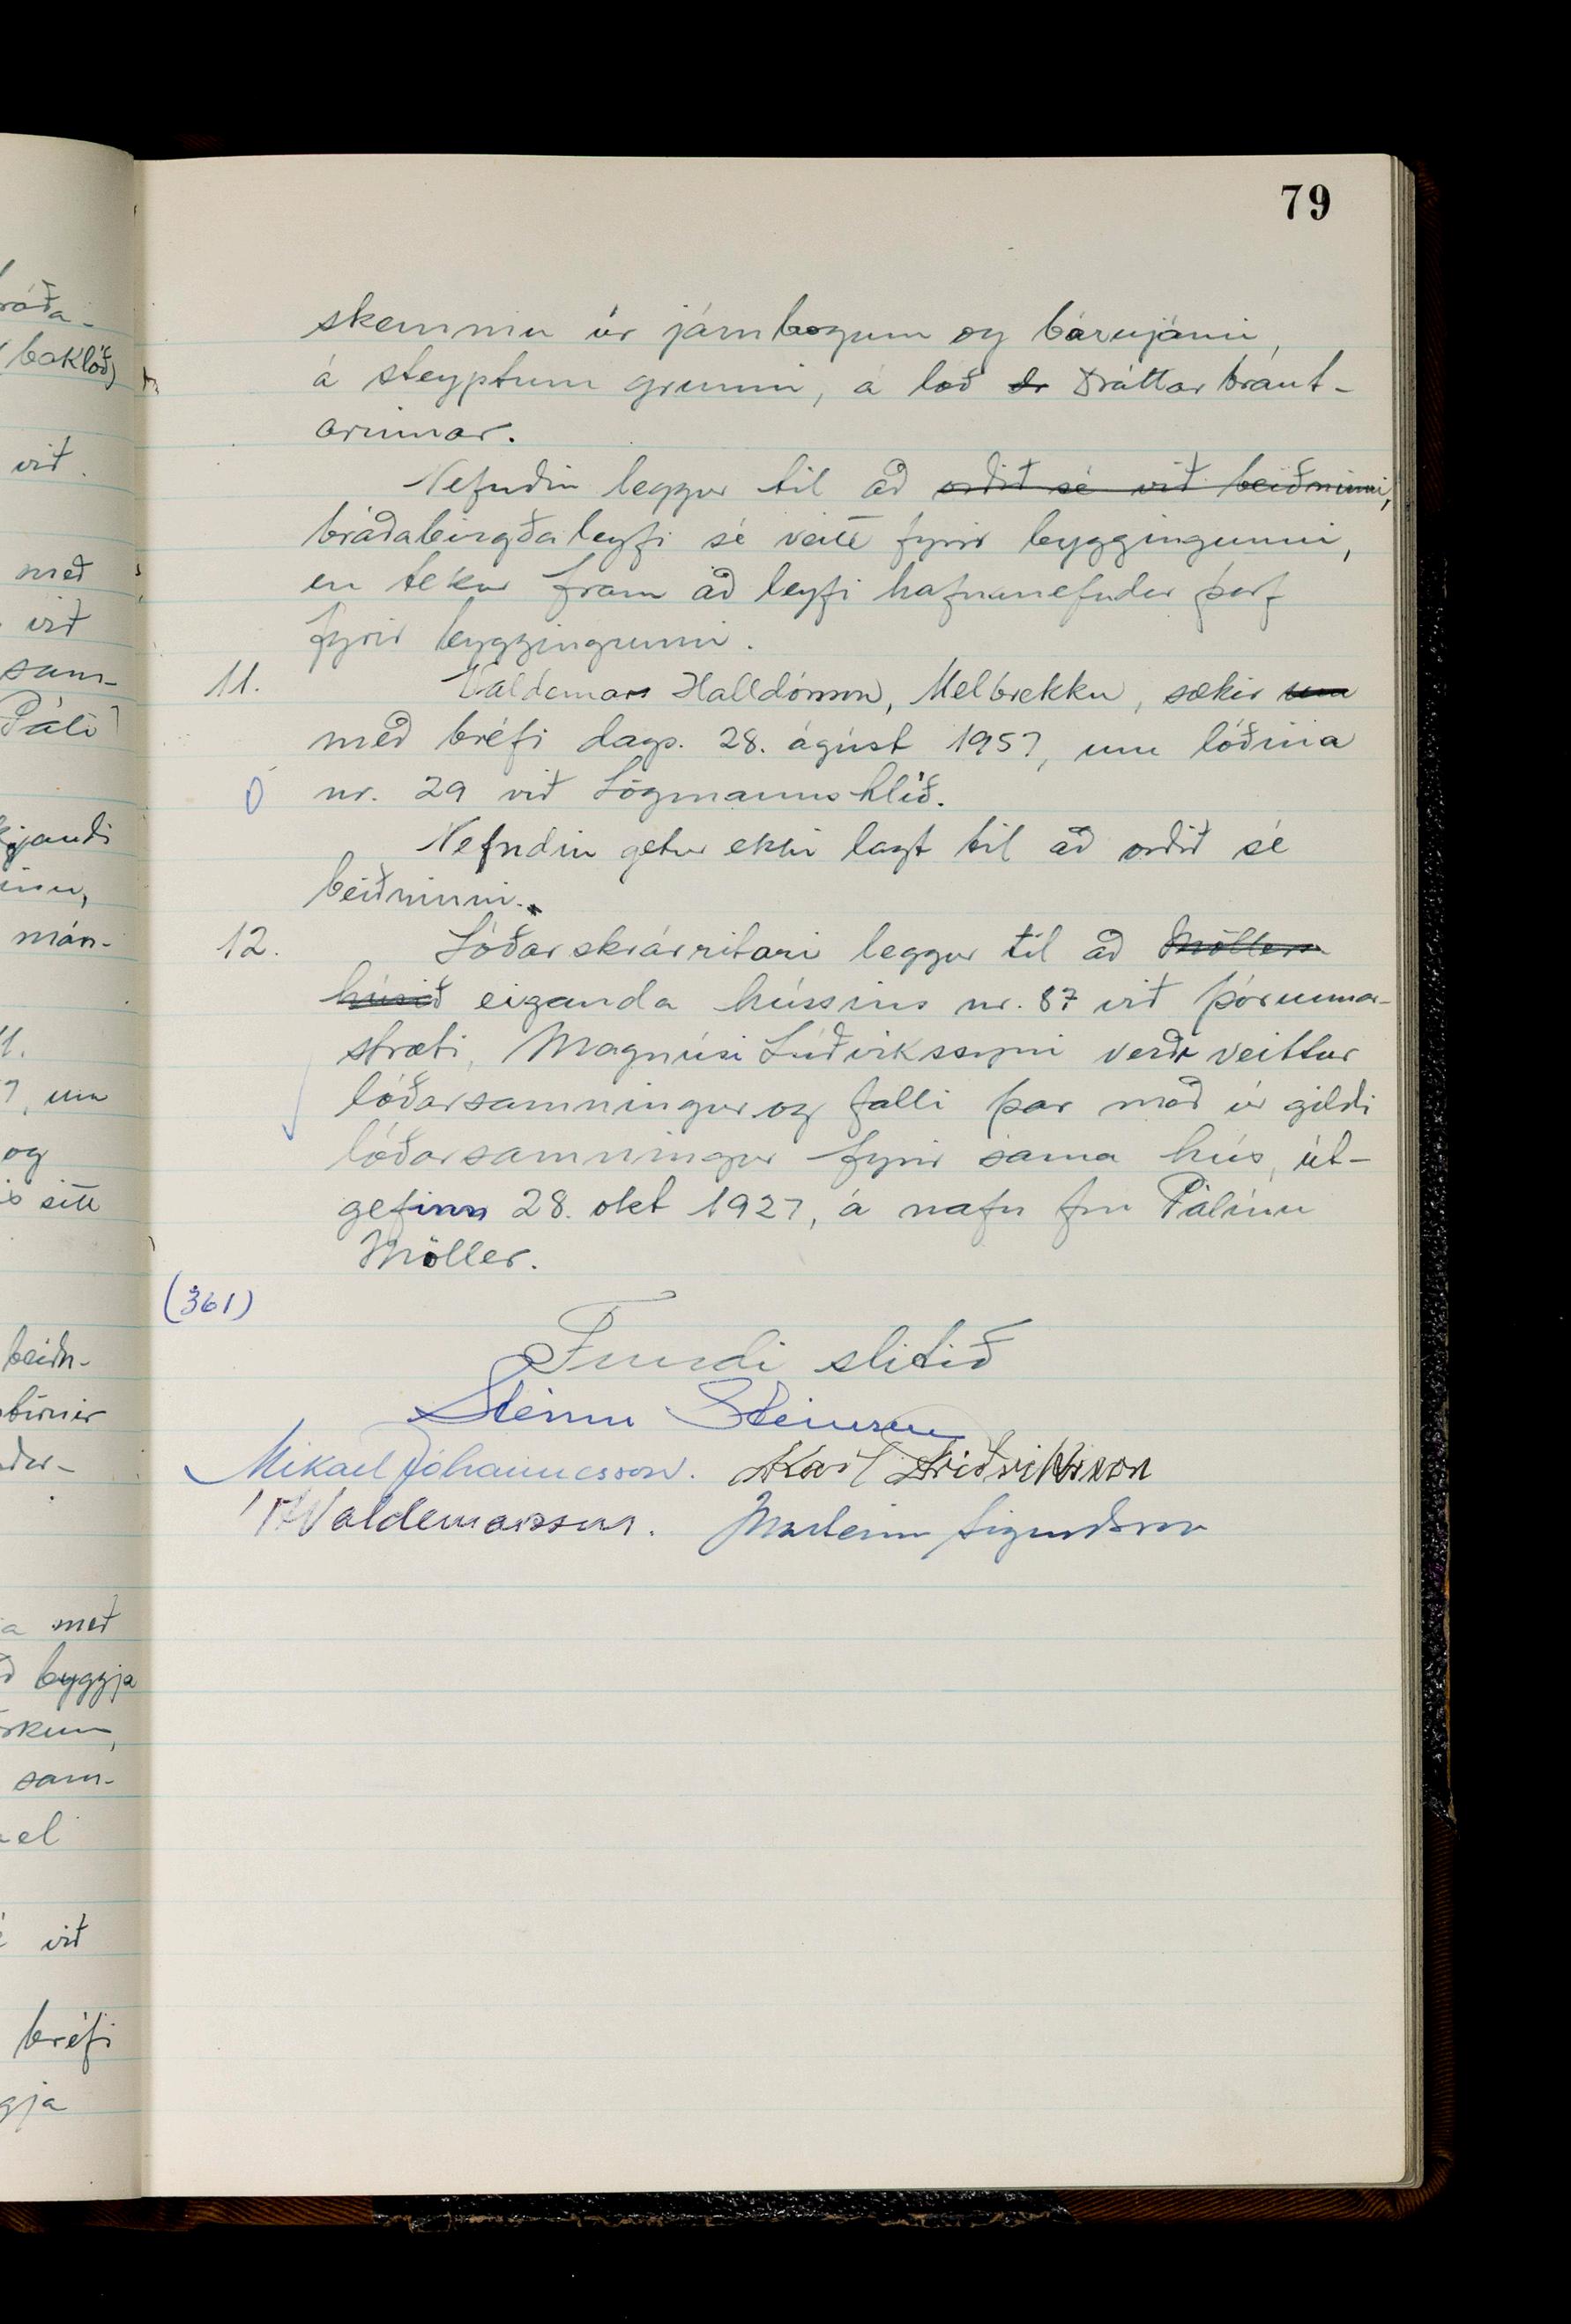 79
skemmu úr járnbogum og bárujárni,
á steyptum grunni, á lóð dr Dráttarbraut-
arinnar.
Nefndin leggur til að orðið sé við beiðninni,
bráðabirgðaleyfi sé veitt fyrir byggingunni,
en tekur fram að leyfi hafnarnefndar þarf
fyrir byggingunni.
11. Valdemar Halldórsson, Melbrekku, sækir um
með bréfi dags. 28. ágúst 1957, um lóðina
nr. 29 við Lögmannshlíð.
Nefndin getur ekki lagt til að orðið sé
beiðninni.
12. Lóðarskrárritari leggur til að Möllers
húsið eiganda hússins nr. 87 við Þórunnar-
stræti, Magnúsi Lúðvikssyni verði veittur
lóðarsamningur og falli þar með úr gildi
lóðarsamningur fyrir sama hús, út-
gefinn 28. okt 1927, á nafn frú Pálínu
Möller.
(361)
Fundi slitið
Steinn Steinsen
Mikael Jóhannesson. Karl Friðriksson
Á Valdemarsson. Marteinn Sigurðsson